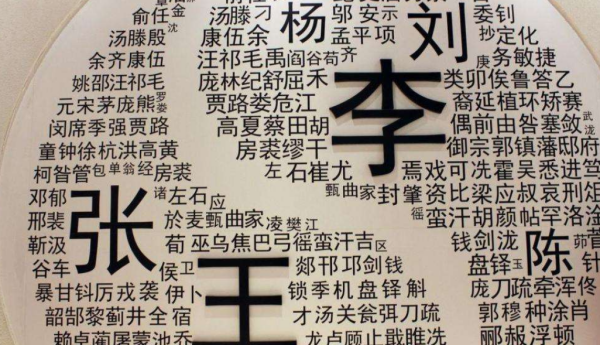 俞任金 汤滕刁 杨 邬安示 刘 委钊
汤滕殷 沈 康伍余 孟平项 抄定化
余齐康伍 汪祁毛禹阎谷苟齐 庚务敏捷
姚邵汪祁毛 庞林纪舒屈禾 李 类卯俟鲁答乙
元宋茅庞熊罗娄 贾路娄危江 裔延植环矫赛
闵席季强贾路 高夏蔡田胡 偶前由昝塞敛武泷
童钟徐杭洪高黄 房裘缪干 御宗郭镇藩邸府
柯昝管包单翁经房裘 左石崔尤 焉戏可冼霍吴悉进笃
邓郁 张 诸左石应 甄曲家封肇资比梁应叔哀刑
邢裴 於麦甄曲家凌樊江 徭蛮汗胡颜帖罕洛淦
靳汲 荀巫乌焦巴弓徭蛮汗吉区 钱剑泷 陈 茆
谷车 侯卫 王 郯邗邛剑钱 盘铎玉 针
暴甘钭厉戎袭伊卜 锁季机盘铎斛 庞刀疏牵浑佟
韶郜黎蓟井全宿 才汤关瓮弭刀疏 郭穆种涂肖
赖卓蔺屠蒙池乔 龙卢顾止戢睢冼 郦郝浮顿